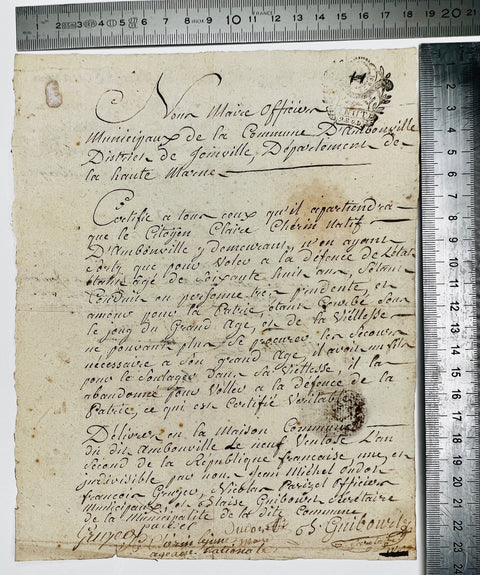 Nous Maire Officiers
Municipaux de la Commune D'Ambonville
District de Joinville, Département de
la haute Marne
Certifie a tous ceux qu'il apartiendra
que le Citoyen Claire Cherin Natif
D'Ambonville y demeurant, n'en ayant
Sorty que pour Voler a la défence de l'Etat
étant agé de Soixante huit ans, S'étant
Conduit en personne très prudente, et
amour pour la Patrie, étant Courbé Sous
le joug du Grand Age, et de la Viellesse
ne pouvant plus Se procurer les Secours
necessaire a Son grand Age, il avoit un fils
pour le Soulager Dans Sa Viellesse, il la
abandonné pour Voller a la défence de la
Patrie, ce qui est Certifié Veritable
Délivrer en la Maison Commune
du dit Ambonville le neuf Ventose L'an
Second de la République francaise, une et
indivisible par nous Jean Michel oudot
francois Gruyer, Nicolas Parizel Officiers
Municipaux, et Blaise Guibourt Secretaire
de la Municipalité de la dite Commune
Gruyer
oudot
B Guibourt
Cherin
agent nationale